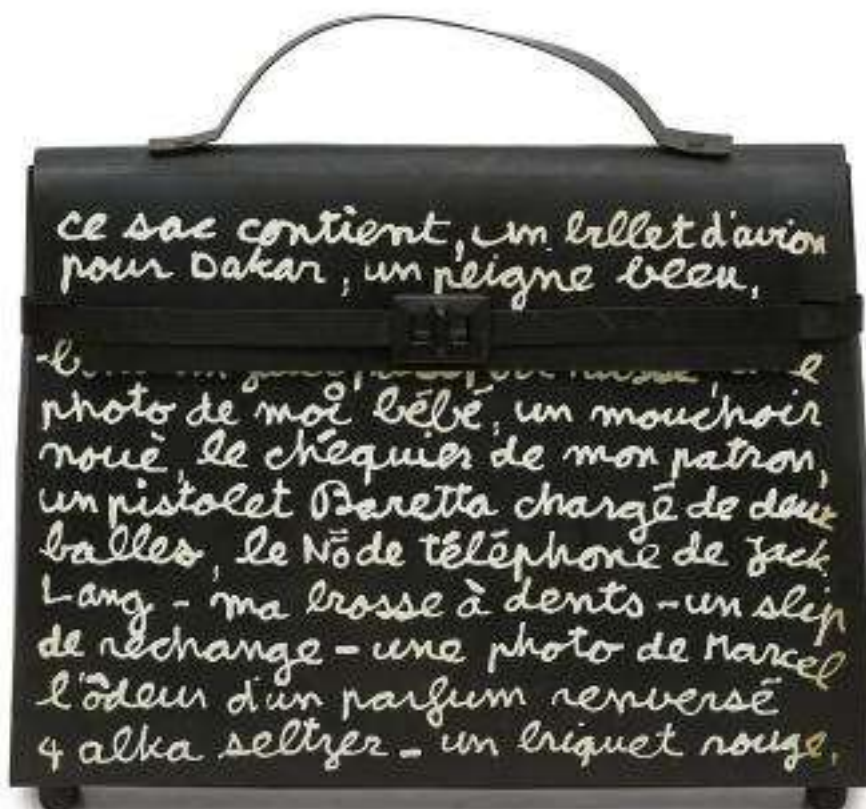 ce sac contient, un billet d'avion
pour Dakar, un peigne bleu,
photo de moi bébé, un mouchoir
noué, le chéquier de mon patron,
un pistolet Baretta chargé de deux
balles, le Nō de téléphone de Jack
Lang - ma brosse à dents - un slip
de rechange - une photo de Marcel
l'ôdeur d'un parfum renversé
4 alka seltzer - un briquet rouge.